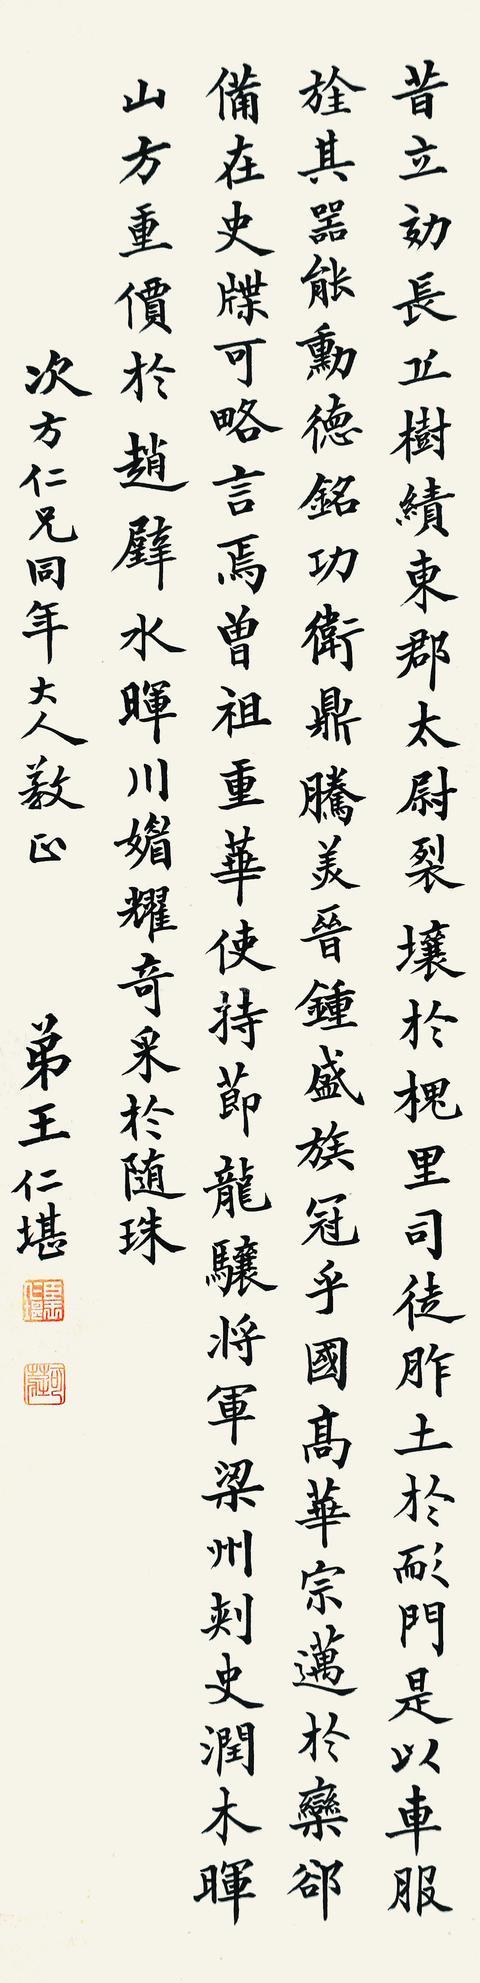 昔立効長丘樹績東郡太尉裂壤於槐里司徒胙土於耏門是以車服
旌其器能勳德銘功衛鼎騰美晉鍾盛族冠乎國高華宗邁於欒郤
備在史牒可略言焉曽祖重華使持節龍驤将軍梁州刾史潤木暉
山方重價於趙璧水暉川媚耀奇采於随珠
次方仁兄同年大人教正
弟王仁堪